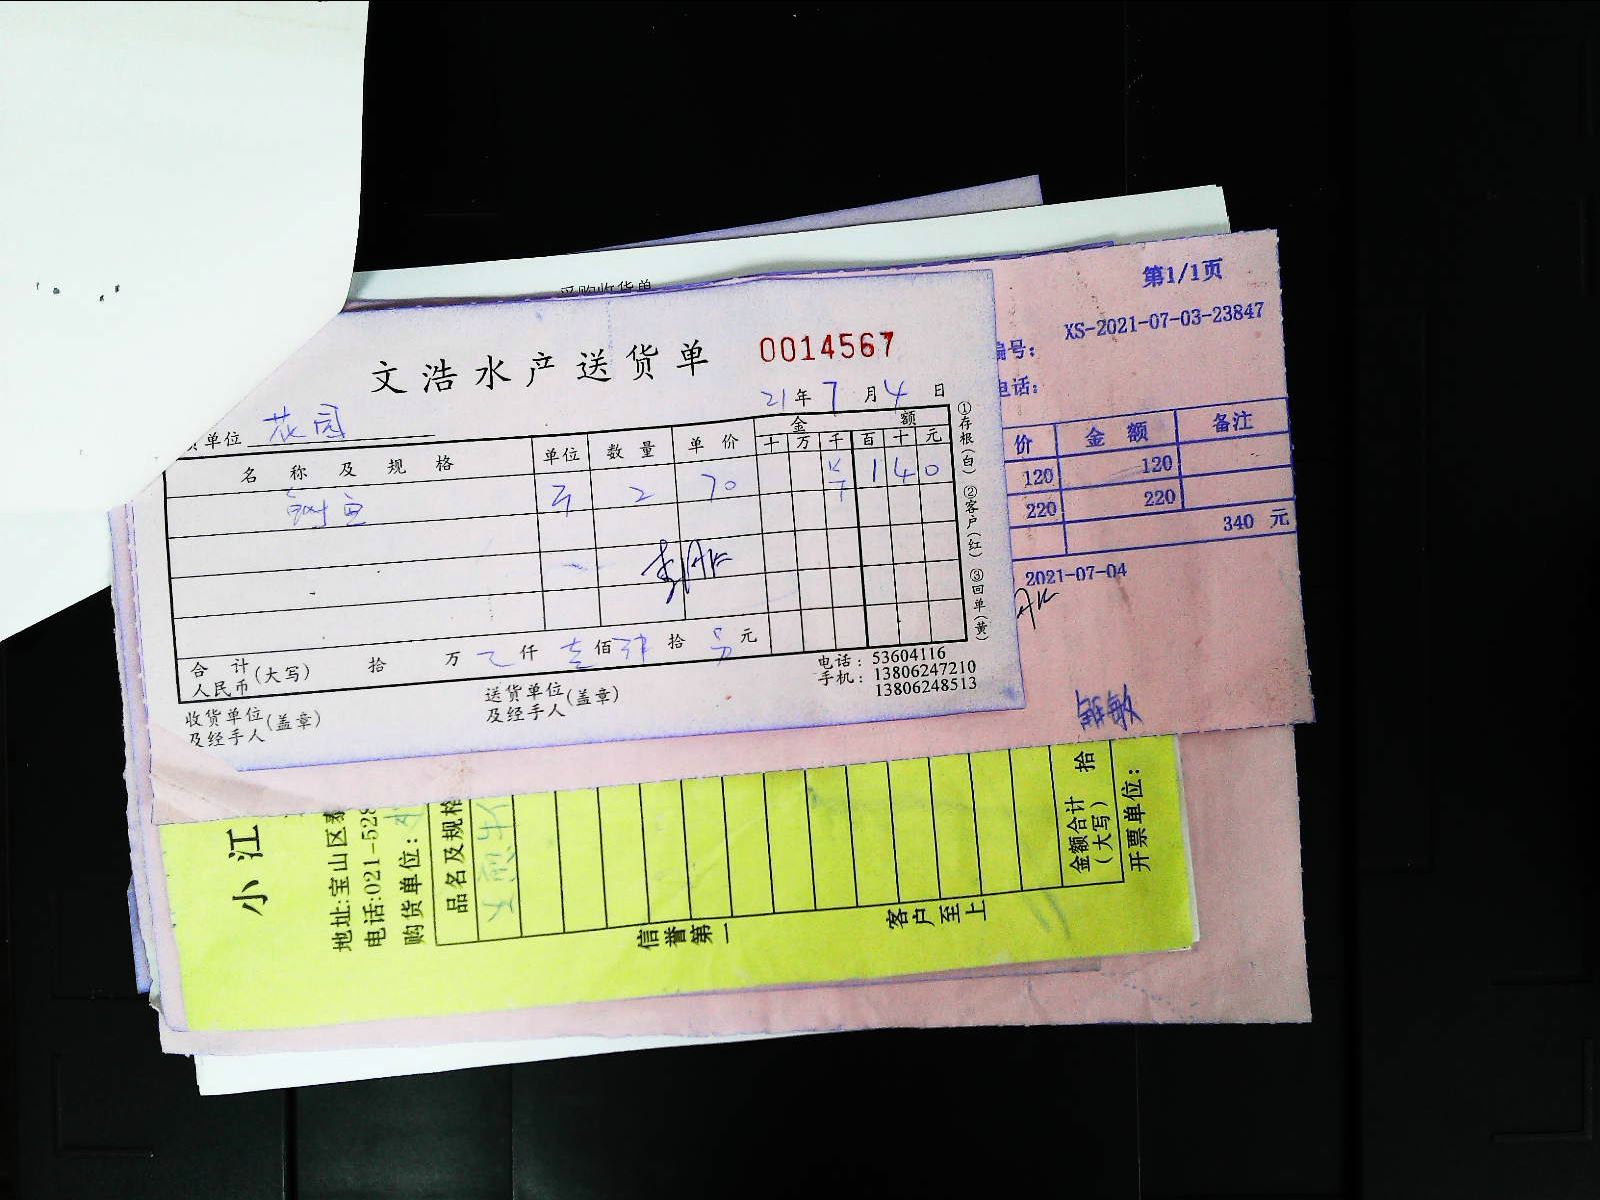 采购收货单
第1/1页
XS-2021-07-03-23847
编号:
电话:
价 金 额 备注
120 120
220 220
340 元
2021-07-04
文浩水产送货单 0014567
21年7月4日
货单位 花园
名 称 及 规 格 单位 数 量 单 价 金 额
十 万 千 百 十 元
鱼 2 70 ¥ 1 4 0
合 计(大写) 拾 万 仟 壹 佰 肆 拾 元
人民币
收货单位(盖章)
及经手人
送货单位(盖章)
及经手人
电话: 53604116
手机: 13806247210
13806248513
①存根(白) ②客户(红) ③回单(黄)
小江
地址:宝山区
电话:021-528
购货单位:
品名及规格
金额合计 拾
(大写)
开票单位:
信誉第一
客户至上